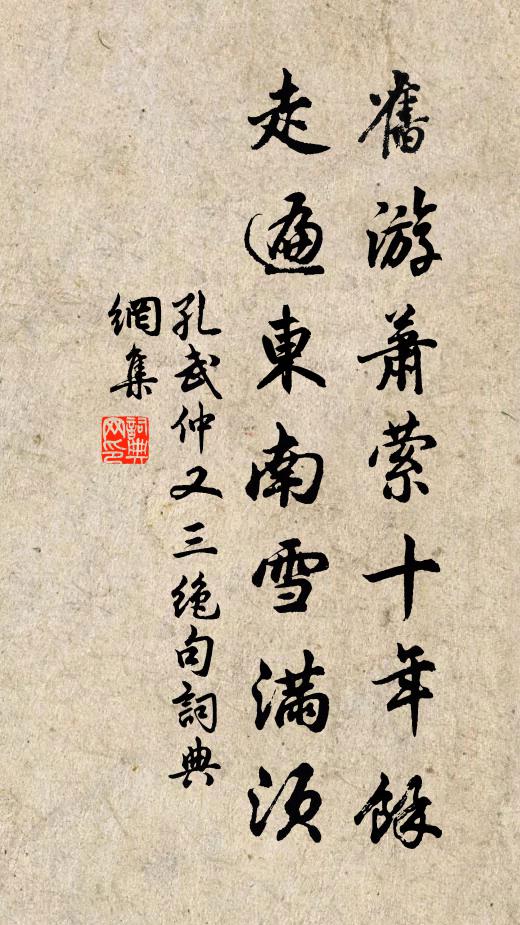 舊游蕭縈十年餘
走遍東南雪滿須
孔武仲又三絕句詞典
網集
詞典網印